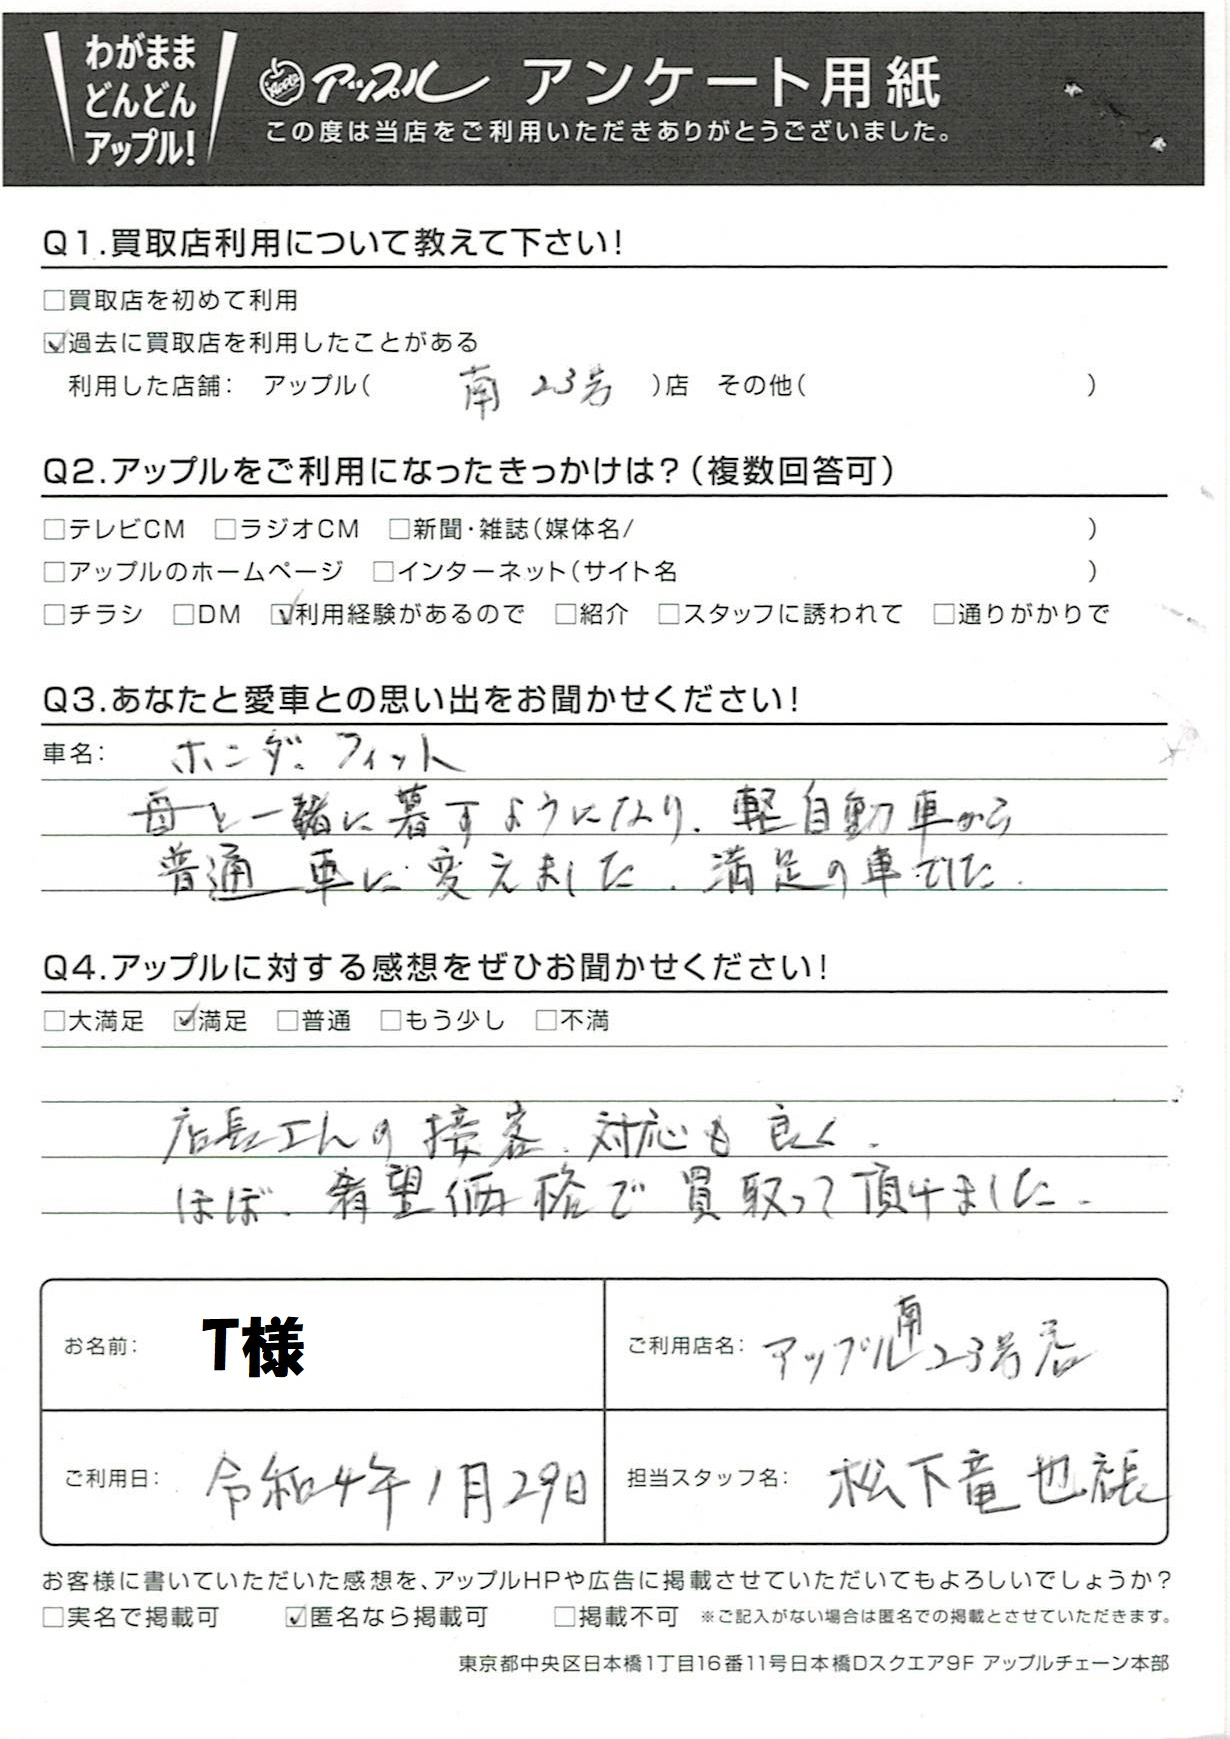 わがまま
どんどん
アップル!
Apple アップル アンケート用紙
この度は当店をご利用いただきありがとうございました。
Q1.買取店利用について教えて下さい!
□買取店を初めて利用
☑過去に買取店を利用したことがある
利用した店舗: アップル( 南23号 )店 その他( )
Q2.アップルをご利用になったきっかけは?(複数回答可)
□テレビCM □ラジオCM □新聞・雑誌(媒体名/ )
□アップルのホームページ □インターネット(サイト名 )
□チラシ □DM ☑利用経験があるので □紹介 □スタッフに誘われて □通りがかりで
Q3.あなたと愛車との思い出をお聞かせください!
車名: ホンダ.フィット
母と一緒に暮すようになり、軽自動車から
普通車に変えました.満足の車でした.
Q4.アップルに対する感想をぜひお聞かせください!
□大満足 ☑満足 □普通 □もう少し □不満
店長さんの接客、対応も良く、
ほぼ、希望価格で買取って頂けました.
お名前: T様
ご利用店名: アップル南23号店
ご利用日: 令和4年1月29日
担当スタッフ名: 松下竜也
お客様に書いていただいた感想を、アップルHPや広告に掲載させていただいてもよろしいでしょうか?
□実名で掲載可 ☑匿名なら掲載可 □掲載不可 ※ご記入がない場合は匿名での掲載とさせていただきます。
東京都中央区日本橋1丁目16番11号日本橋Dスクエア9F アップルチェーン本部